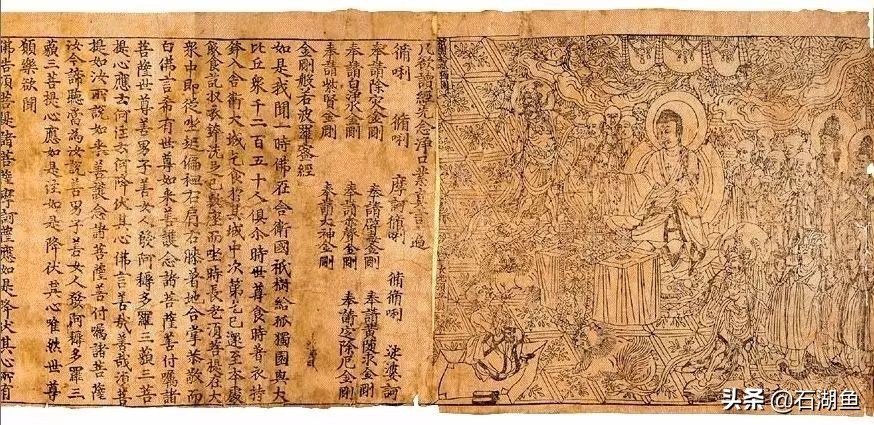 凡欲讀經先念淨口業真言一遍
脩唎 脩唎 摩訶脩唎 脩脩唎 娑婆訶
奉請除灾金剛 奉請辟毒金剛 奉請黃隨求金剛
奉請白淨水金剛 奉請赤聲金剛 奉請定除厄金剛
奉請紫賢金剛 奉請大神金剛
金剛般若波羅蜜經
如是我聞一時佛在舍衛國祇樹給孤獨園與大
比丘衆千二百五十人俱尒時世尊食時著衣持
鉢入舍衛大城乞食於其城中次第乞已還至本處
飯食訖收衣鉢洗足已敷座而坐時長老須菩提在大
衆中即從坐起偏袒右肩右膝著地合掌恭敬而
白佛言希有世尊如来善護念諸菩薩善付囑諸
菩薩世尊善男子善女人發阿耨多羅三藐三菩
提心應云何住云何降伏其心佛言善哉善哉須菩
提如汝所說如来善護念諸菩薩善付囑諸菩薩
汝今諦聽當為汝說善男子善女人發阿耨多羅三
藐三菩提心應如是住如是降伏其心唯然世尊
願樂欲聞
佛告須菩提諸菩薩摩訶薩應如是降伏其心所有
头条 @石湖鱼